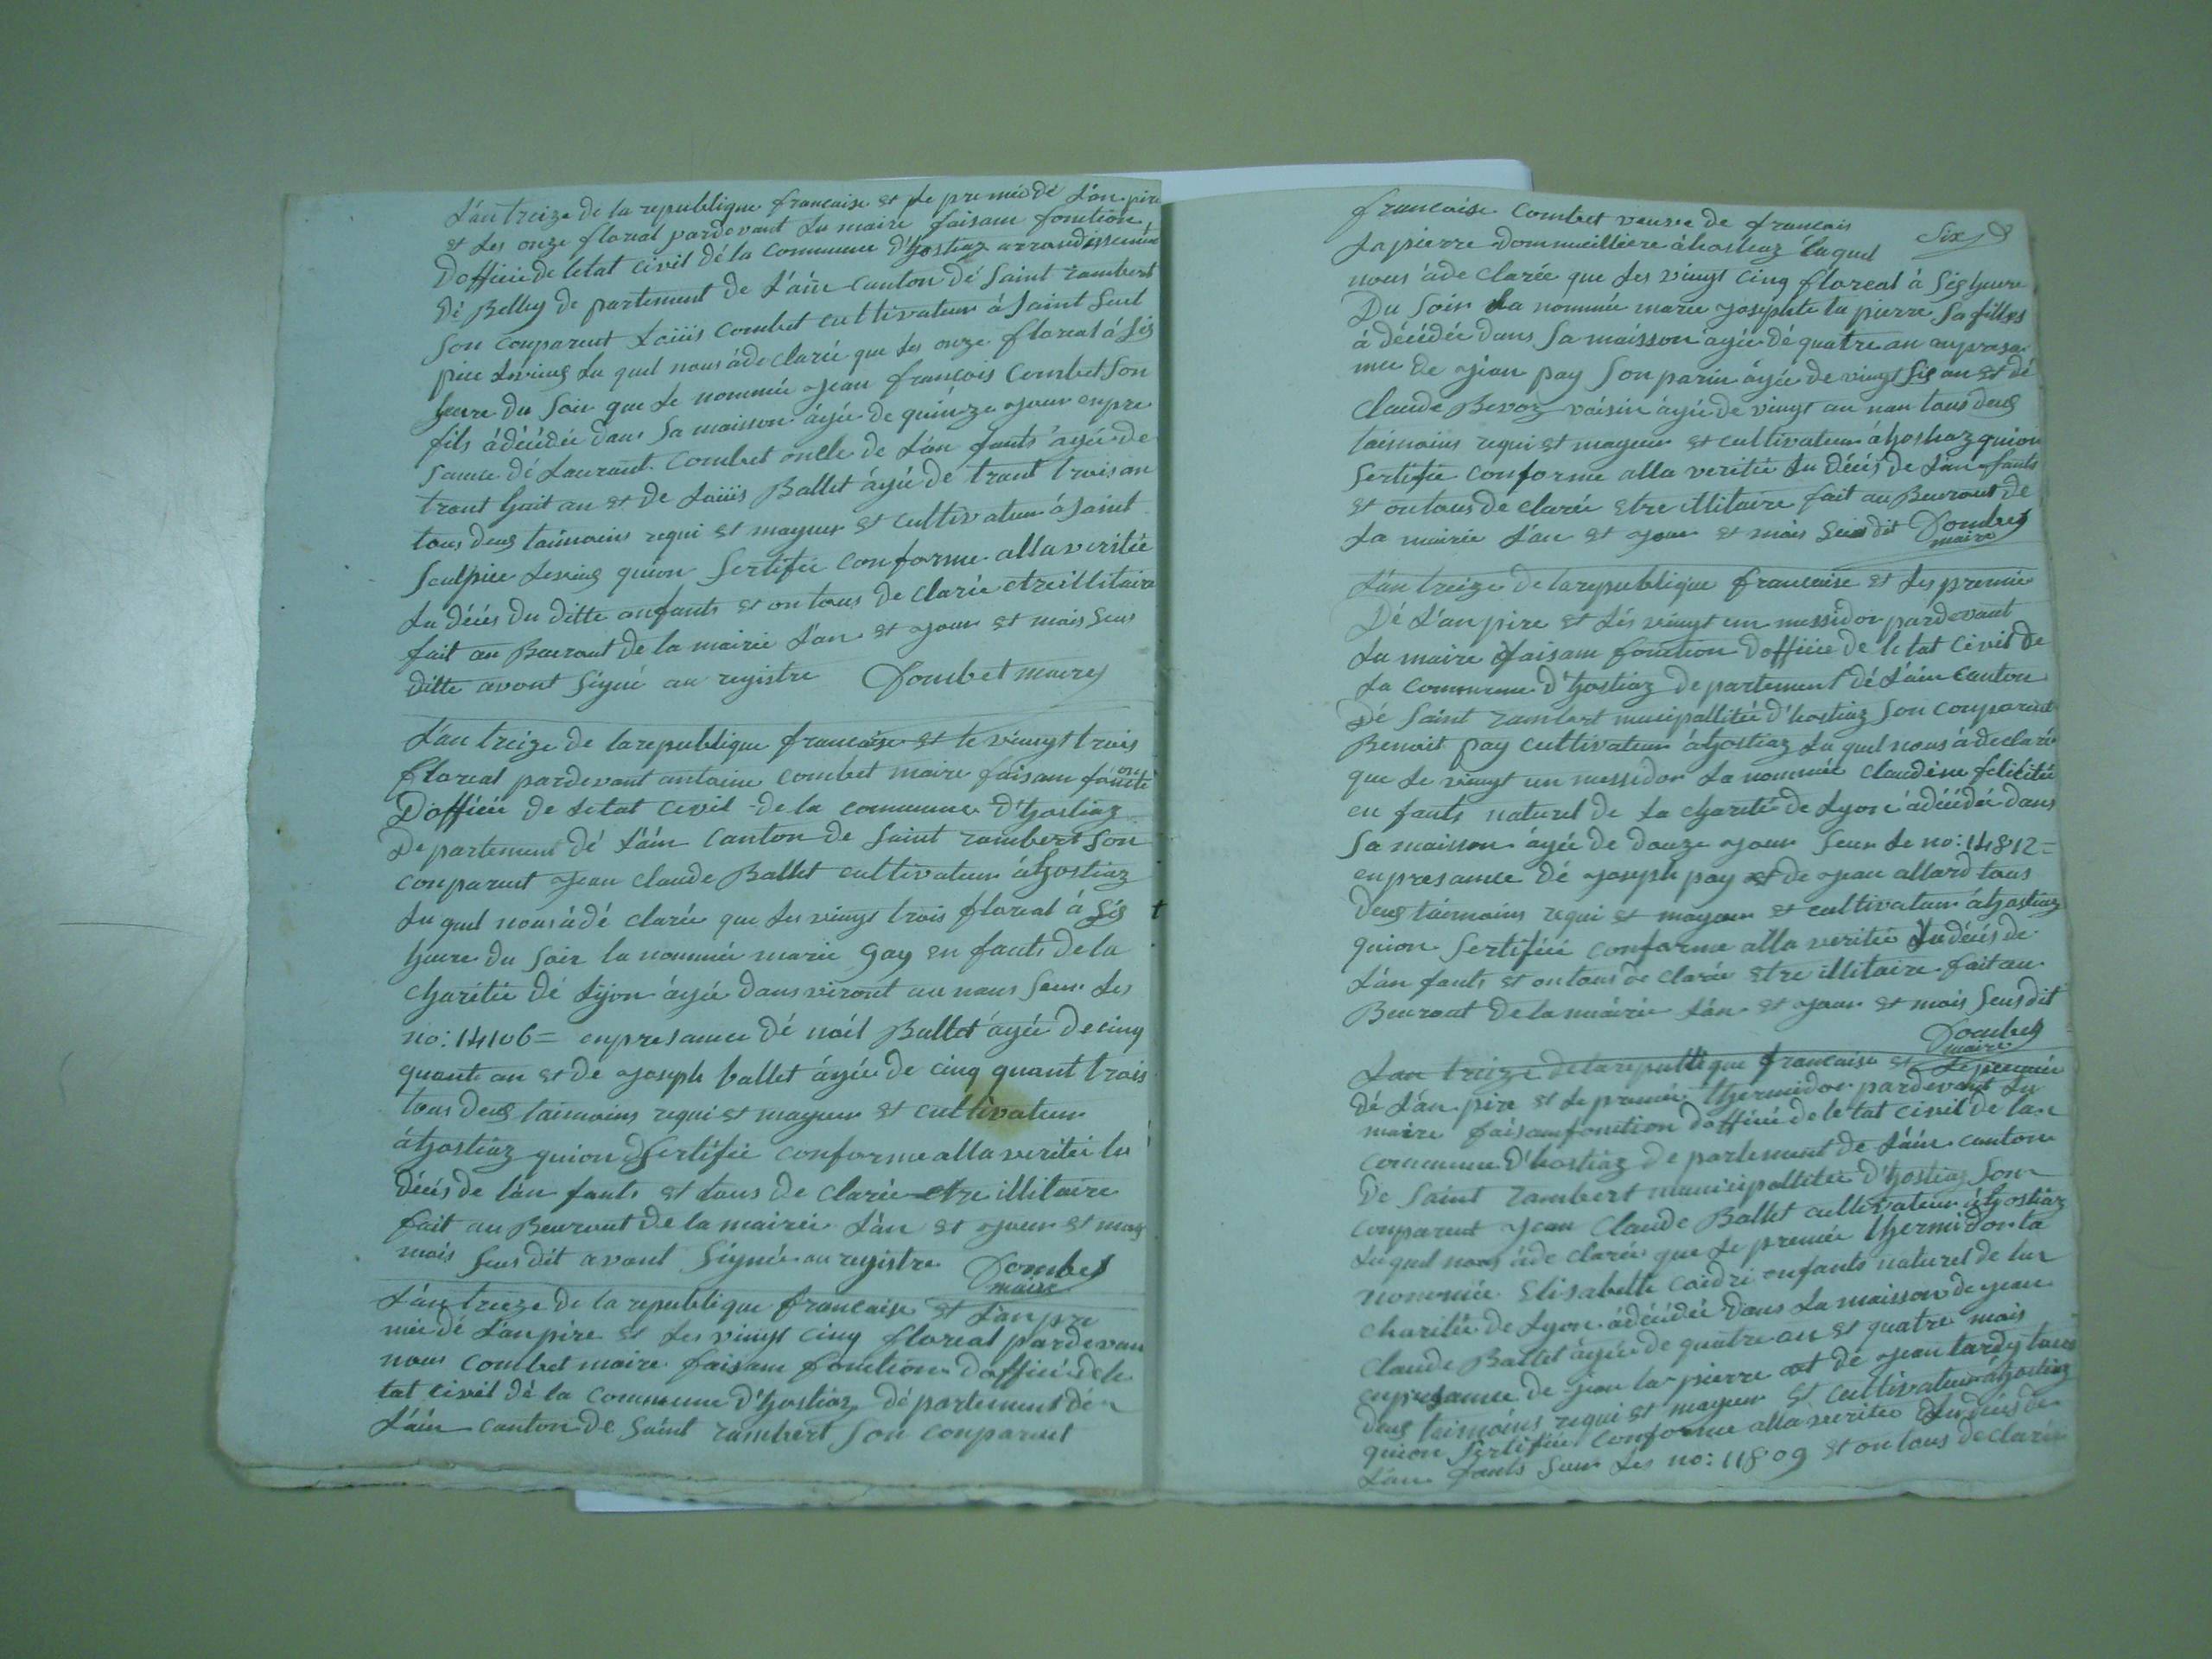 L'an treize de la republique francaise et le premié dé L'an pire
et les onze floreal pardevant Lu maire faisam fonction
Doffiié de letat civil dé la commune d'hostiaz arrondissemen
Dé Belley de partement de L'áin canton dé saint rambert
son comparut Loiiis combet cultivateur á saint Seul
pice Lu quel nous áde clarée que les onze floreal á sis
heure du soir que le nommée jean francois combet son
fils ádécédée dans sa maison áyée de quinze jour enpre
sance dé Laurant combet oncle de L'an fants áyée de
trant huit an et de Loiiis Ballet áyée de trant trois an
tous deus taimoins requi et mayeur et cultivateur á saint
seulpice quion sertifée conforme alla veritée
Lu décés du ditte anfants et on tous de clarée etre illitaire
fait au Beuraut de la mairie L'an et jour et mois seus
ditte avont signé au registre Combet maire
L'an treize de la republique francaise et le vingt trois
floreal pardevant antoine combet maire faisam foncti on
D'offiié de letat civil de la commune D'hostiaz
De partement dé L'áin canton de saint rambert son
conparut jean claude Ballet cultivateur áhostiaz
Lu quel nous ádé clarée que les vingt trois floreal á sis
heure du soir la nommée marie gay en fants de la
charitée dé Lyon áyée dans viront un nans seur les
no: 14106 = enpresance dé noél Ballet áyée de cinq
quante an et de joseph ballet áyée de cinq quant trois
tous deus taimoins requi et mayeur et cultivateur
áhostiaz quion sertifée conforme alla veritée lu
décés de lan fants et tous de clarée etre illitaire
fait au Beuraut de la mairée L'an et jour et moy
mois seus dit avont signée au registre Combet
maire
L'an treize de la republique francaise et L'an pre
mié dé L'anpire et les vingt cinq floreal pardevan
nous combet maire faisam fonction doffiié de le
tat civil dé la commune D'hostiaz dé partement dé
L'áin canton de saint rambert son conparut
francaise combet veuve de francais Six
Lapierre dommeilliere áhostiaz laquel
nous áde clarée que les vingt cinq floreal á sis heure
Du soir La nommée marie josephte la pierre sa filles
á décédée dans sa maisson áyée dé quatre an anpresa
nce de jean pay son parin áyée de vingt sis an et dé
claude Bevoz voisin áyée de vingt an nan tous deus
taimoins requi et mayeur et cultivateur áhostiaz quion
sertifée conforme alla veritée Lu décés de L'an fants
et on tous de clarée etre illitaire fait au Beuraut de
La mairie L'an et jour et mois seus dit Combet
maire
L'an treize de la republique francaise et les premié
Dé L'anpire et Lés vingt un messidor pardevant
Lu maire faisam fonction doffiié de le tat civil de
La commune d'hostiaz departement dé L'áin canton
Dé saint rambert municipallitée d'hostiaz son conparut
Benoit pay cultivateur áhostiaz Lu quel nous ádeclaré
que Le vingt un messidor La nommée claudine felicitée
en fants naturel de La charité de Lyon ádécédée dans
sa maison áyée de douze jour seur Le no: 14812 =
enpresance dé joseph pay et de jean allard tous
deus taimoins requi et mayeur et cultivateur áhostiaz
quion sertifiée conforme alla veritée Lu décés de
L'an fants et on tous de clarée etre illitaire fait au
Beuraut de la mairie L'an et jour et mois seus dit
Combet
maire
L'an treize de la republique francaise et Le premié
dé L'an pire et Le premié thermidor pardevant Lu
maire faisam fonction doffiié de le tat civil de la
commune d'hostiaz de partement de L'áin canton
De saint rambert municipallitée d'hostiaz son
conparut jean claude Ballet cultivateur áhostiaz
Lu quel nous áde clarée que Le premié thermidor la
nommée Elisabelle caidri enfants naturel de la
charitée de Lyon ádécédée dans La maisson de jean
claude Ballet áyée de quatre an et quatre mois
enpresance de jean la pierre et de jean tardy tous
deus taimoins requi et mayeur et cultivateur áhostiaz
quion sertifiée conforme alla veritée Lu décés de
L'an fants seur Lés no: 11809 et on tous declarée